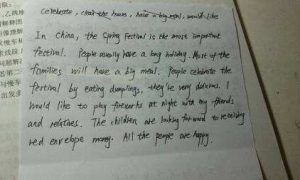 celebrate, clean the house, have a big meal, would like
In China, the Spring Festival is the most important
festival. People usually have a long holiday. Most of the
families will have a big meal. People celebrate the
festival by eating dumplings, they're very delicious. I
would like to play fireworks at night with my friends
and relatives. The children are looking forward to receiving
red envelope money. All the people are happy.